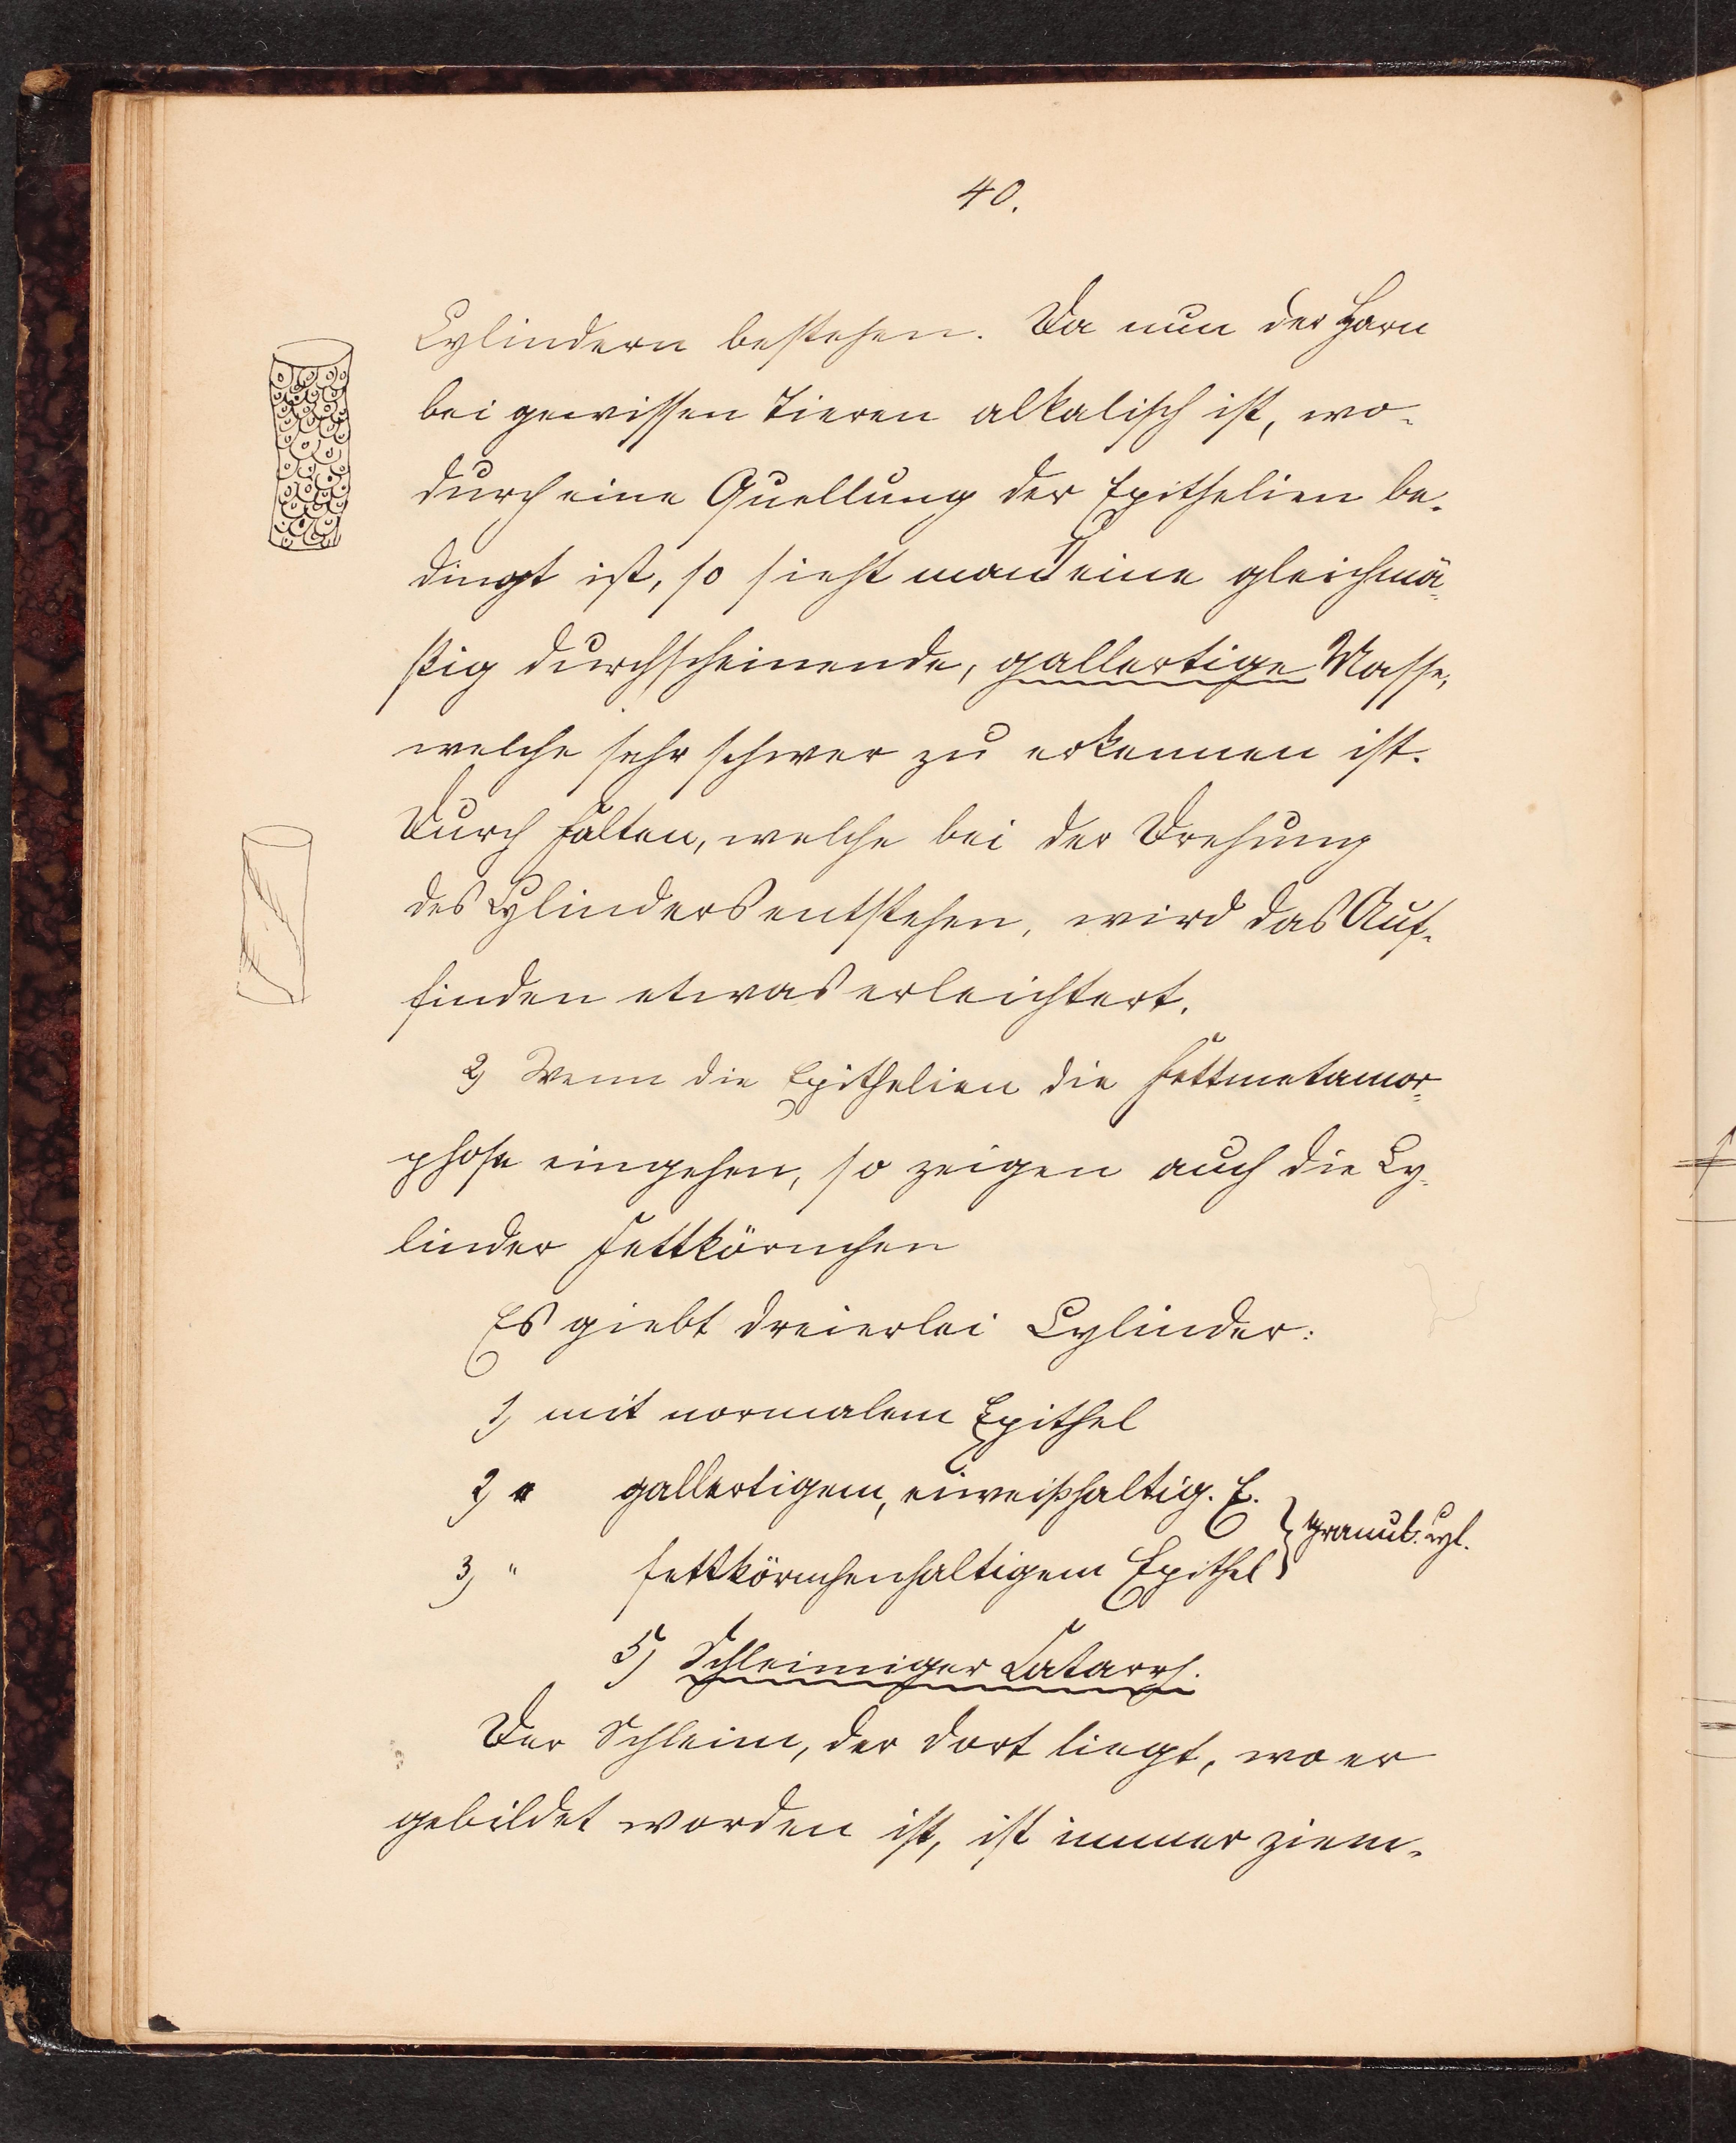 40.
Cylindern bestehen. Da nun der Harn
bei gewissen Tieren alkalisch ist, wo-
durch eine Quellung der Epithelien be-
dingt ist, so sieht man eine gleichmä-
ßig durchscheinende, gallertige Masse,
welche sehr schwer zu erkennen ist.
Durch Falten, welche bei der Drehung
des Cylinders entstehen, wird das Auf-
finden etwas erleichtert.
2) Wenn die Epithelien die Fettmetamor-
phose eingehen, so zeigen auch die Cy-
linder Fettkörnchen
Es giebt dreierlei Cylinder:
1) mit normalem Epithel
2) " gallertigem, eiweißhaltig. E.
3) " fettkörnchenhaltigem Epithel } granul. Cyl.
5) Schleimiger Catarrh.
Der Schleim, der dort liegt, wo er
gebildet worden ist, ist immer ziem-